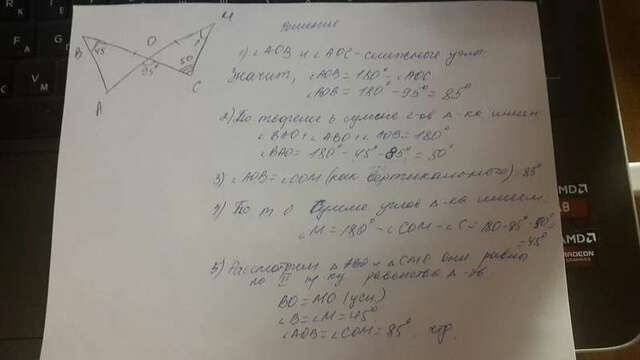 M
Решение
O
B 45
95°
50
?
C
A
1) ∠AOB и ∠AOC - смежные углы.
Значит, ∠AOB = 180° - ∠AOC
∠AOB = 180° - 95° = 85°
2) По теореме о сумме ∠-ов Δ-ка имеем
∠BAO + ∠ABO + ∠AOB = 180°
∠BAO = 180° - 45° - 85° = 50°
3) ∠AOB = ∠COM (как вертикальные) = 85°
4) По т. о сумме углов Δ-ка имеем
∠M = 180° - ∠COM - ∠C = 180 - 85° - 50° =
= 45°
5) Рассмотрим Δ ABO и Δ CMO они равны
по II пр-ку равенства Δ-ов.
BO = MO (усл)
∠B = ∠M = 45°
∠AOB = ∠COM = 85° чтд.
AMD
A8
AMD
RADEON
GRAPHICS